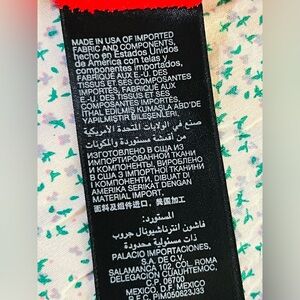 MADE IN USA OF IMPORTED
FABRIC AND COMPONENTS,
hecho en Estados Unidos
de América con telas y
componentes importados,
FABRIQUÉ AUX E.-U. DES
TISSUS ET SES COMPOSANTES
IMPORTÉS, FABRIQUÉ AUX
E.-U. DES TISSUS ET SES
COMPOSANTES IMPORTÉS,
ITHAL EDILEN KUMASLA ABD'DE
YAPILMIŞTIR BILEŞENLERI,
صنع في الولايات المتحدة الأمريكية
من أقمشة مستوردة والمكونات
ИЗГОТОВЛЕНО В США ИЗ
ИМПОРТИРОВАННОЙ ТКАНИ
И КОМПОНЕНТЫ, ВИРОБЛЕНО
В США З ІМПОРТНОЇ ТКАНИНИ
КОМПОНЕНТИ, DIBUAT DI
AMERIKA SERIKAT DENGAN
MATERIAL IMPORT.
面料及组件进口，美国加工
المستورد:
فاشون انترناشيونال جروب
ذات مسئولية محدودة
PALACIO IMPORTACIONES,
S.A. DE C.V.
SALAMANCA 102, COL. ROMA
DELEGACION CUAUHTEMOC,
C.P. 06700
MEXICO, D.F. MEXICO
R.F.C. PIM050623J33